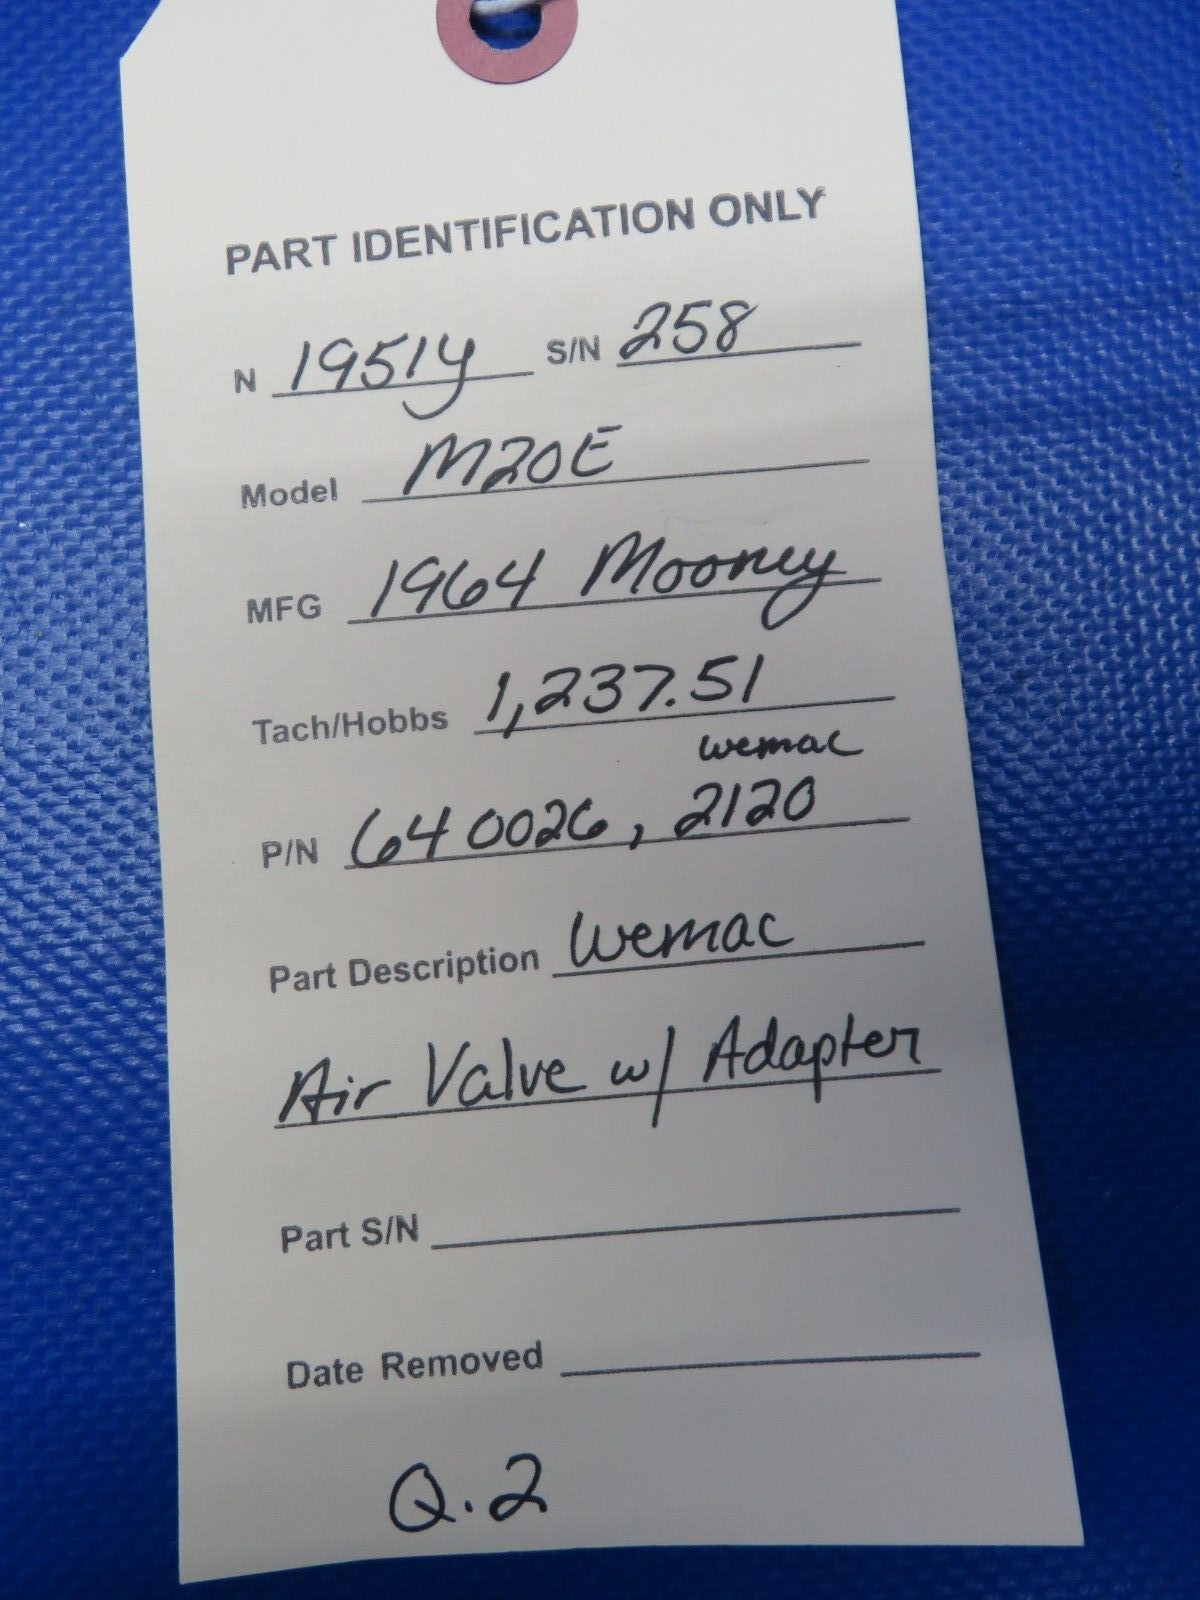 PART IDENTIFICATION ONLY
N 1951Y S/N 258
Model M20E
MFG 1964 Mooney
Tach/Hobbs 1,237.51
wemac
P/N 640026, 2120
Part Description Wemac
Air Valve w/ Adapter
Part S/N
Date Removed
Q.2